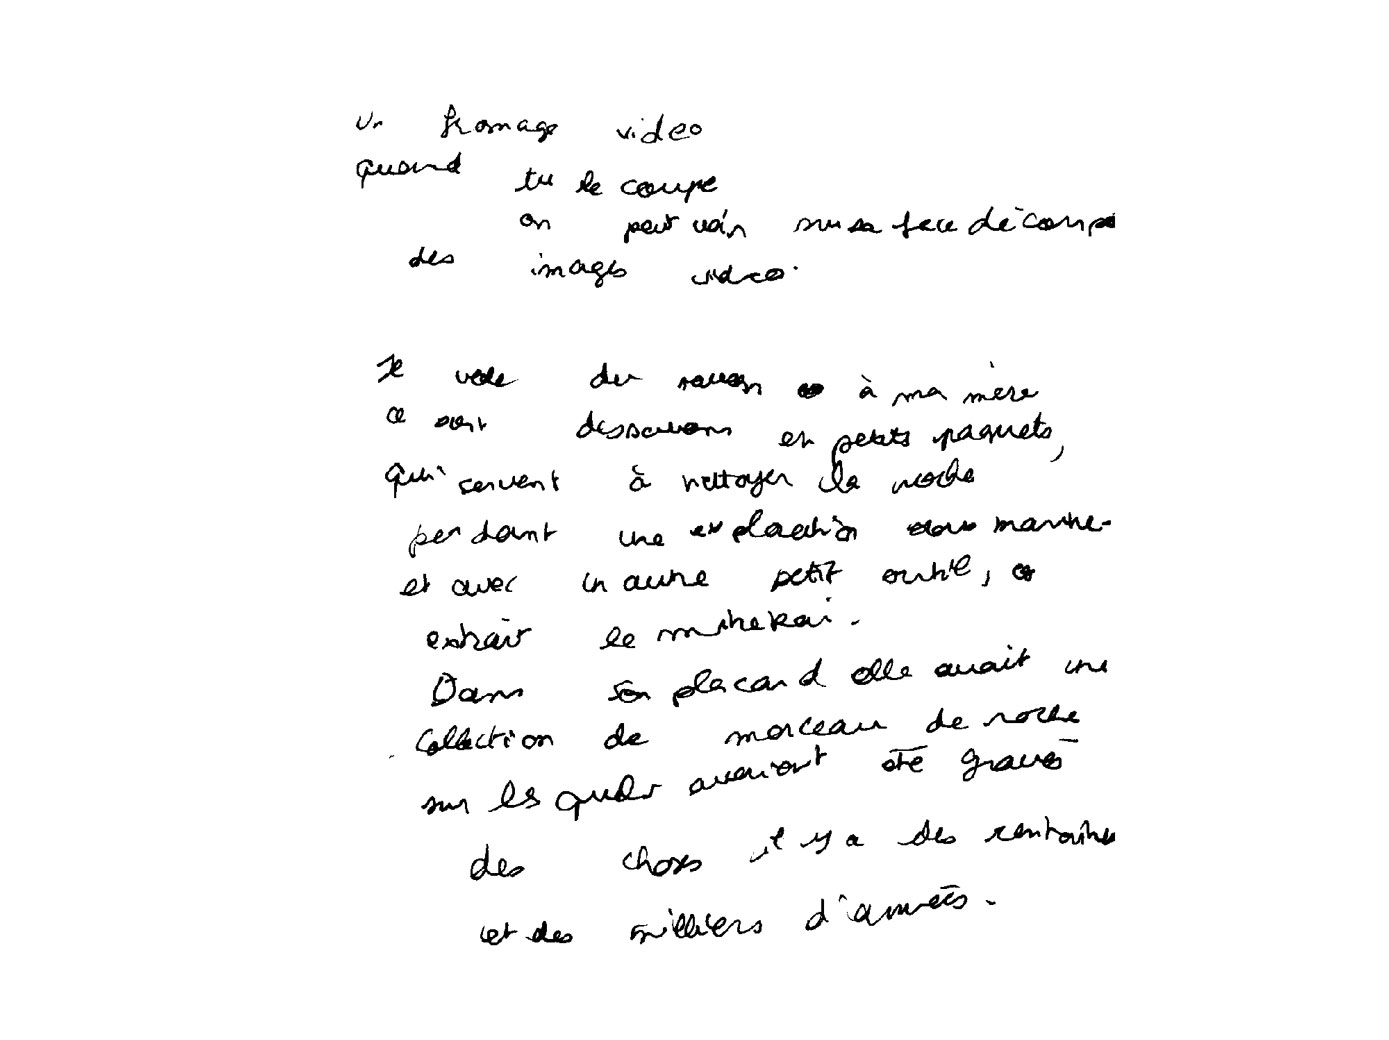 Un fromage video
quand tu le coupe
on peut voir sur sa face découpé
des images video.
Je vole du savon à ma mère
ce sont des savons en petits paquets,
qui servent à nettoyer la roche
pendant une exploration sous marine.
et avec un autre petit outil, on
extrait le minerai.
Dans son placard elle avait une
collection de morceau de roche
sur les quels avaient été gravés
des choses il y a des centaines
et des milliers d'années.